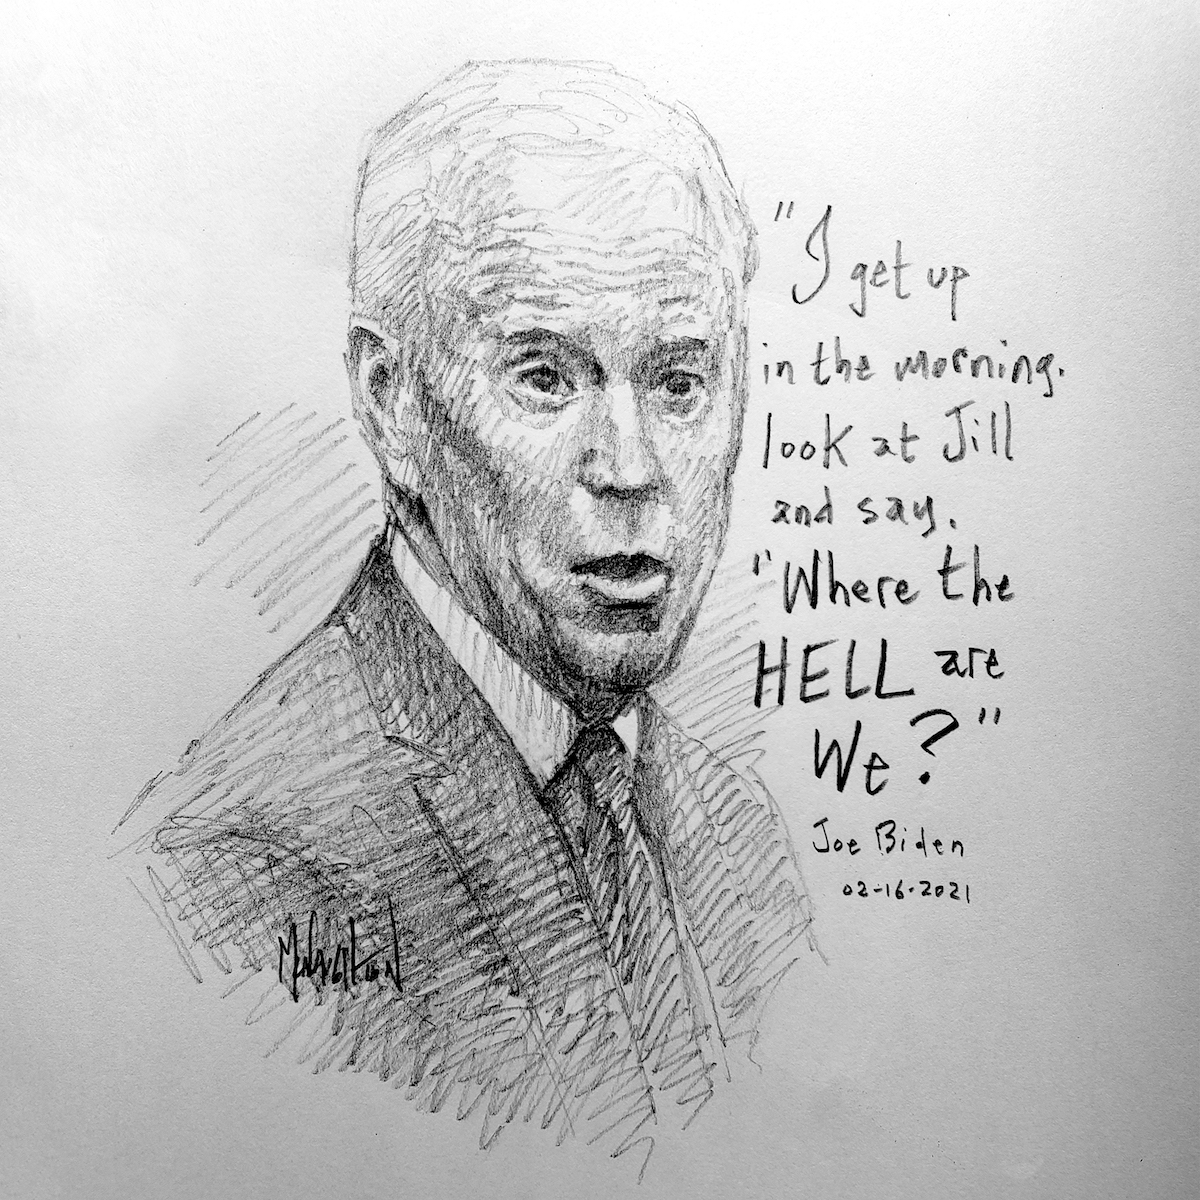 "I get up
in the morning.
look at Jill
and say.
"Where the
HELL are
We?"
Joe Biden
02-16-2021
McNaughton